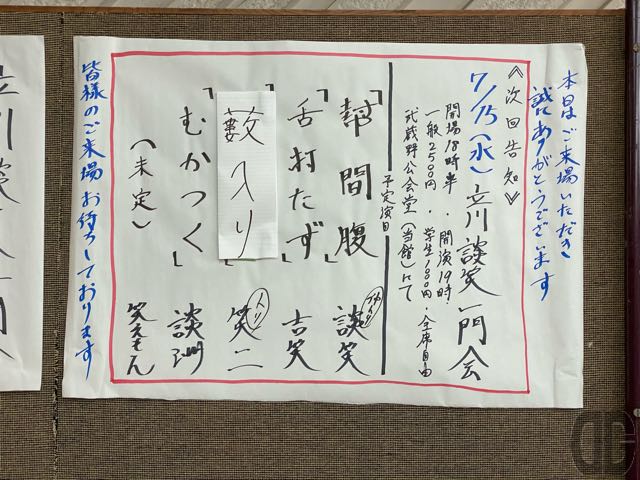 本日はご来場いただき
誠にありがとうございます
《次回告知》
7/15(水)立川談笑一門会
開場18時半・開演19時・
一般2500円・学生1800円・全席自由
武蔵野公会堂(当館)にて
予定演目
「幇間腹」 談笑
「舌打たず」 吉笑
藪入り 笑二
「むかつく」 談洲
(未定) 笑えもん
皆様のご来場お待ちしております
立川談